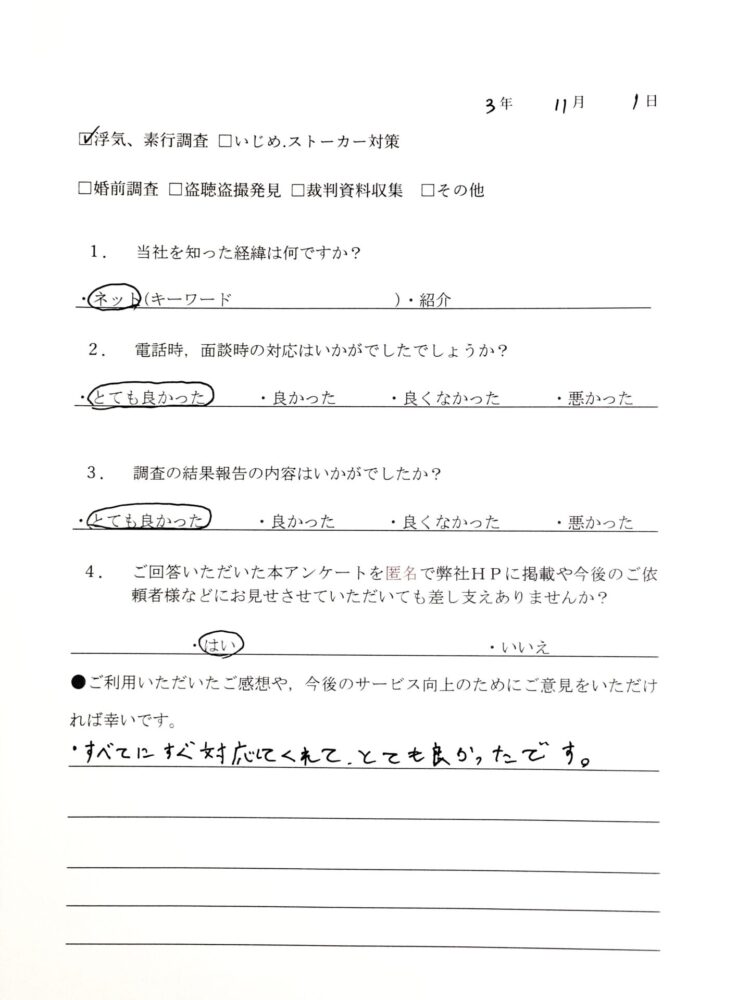 3年 11月 1日
☑浮気、素行調査 □いじめ.ストーカー対策
□婚前調査 □盗聴盗撮発見 □裁判資料収集 □その他
１． 当社を知った経緯は何ですか？
・ネット(キーワード )・紹介
２． 電話時，面談時の対応はいかがでしたでしょうか？
・とても良かった ・良かった ・良くなかった ・悪かった
３． 調査の結果報告の内容はいかがでしたか？
・とても良かった ・良かった ・良くなかった ・悪かった
４． ご回答いただいた本アンケートを匿名で弊社ＨＰに掲載や今後のご依
頼者様などにお見せさせていただいても差し支えありませんか？
・はい ・いいえ
●ご利用いただいたご感想や，今後のサービス向上のためにご意見をいただけ
れば幸いです。
・すべてにすぐ対応してくれて、とても良かったです。